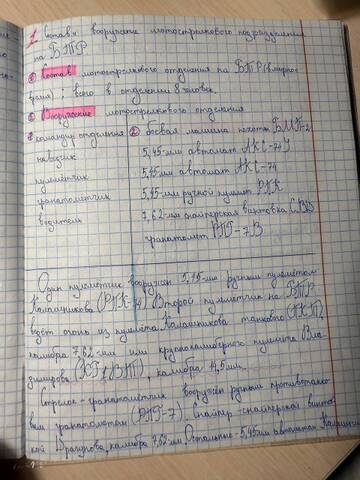 1. Состав и вооружение мотострелкового подразделения
на БТР
Состав мотострелкового отделения на БТР (в мирное
время): всего в отделении 8 человек.
Вооружение мотострелкового отделения
командир отделения боевая машина пехоты БМП-2
наводчик 5,45-мм автомат АКС-74У
пулемётчик 5,45-мм автомат АКС-74
гранатомётчик 5,45-мм ручной пулемет РПК
водитель 7,62-мм снайперская винтовка СВД
гранатомёт РПГ-7В
Один пулемётчик вооружен 5,45-мм ручным пулемётом
Калашникова (РПК-74) Второй пулемётчик на БТР
ведет огонь из пулемёта Калашникова танкового (ПКТ),
калибра 7,62-мм или крупнокалиберного пулемёта Вла-
димирова (КПВТ), калибра 14,5 мм.
Стрелок-гранатомётчик вооружён ручным противотанко-
вым гранатомётом (РПГ-7). Снайпер-снайперской винтов-
кой Драгунова, калибра 7,62-мм. Остальные - 5,45-мм автоматом Калашни